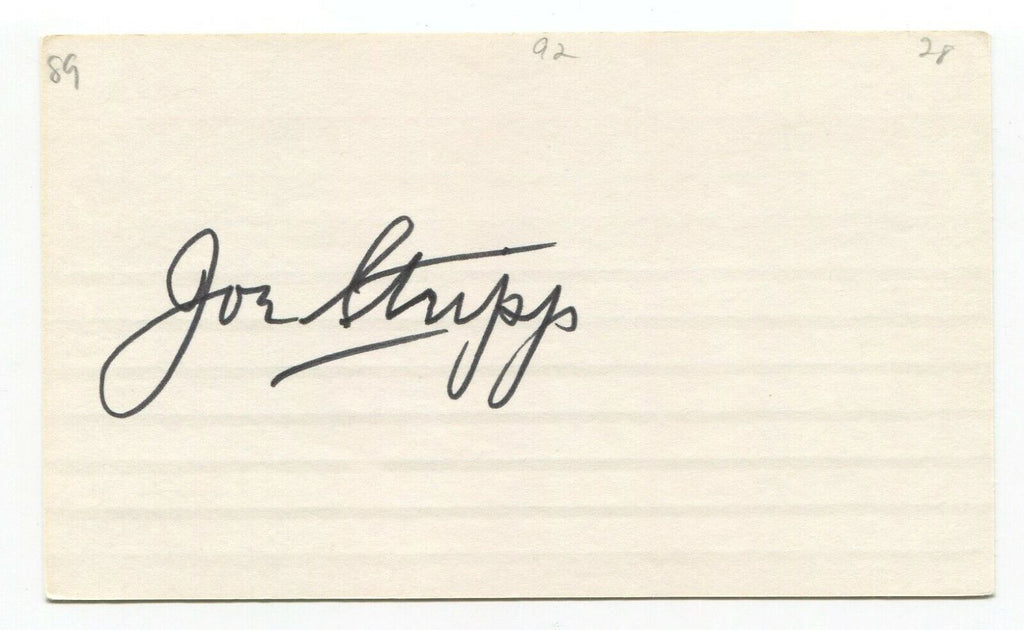 89 92 28
Joe Stripp